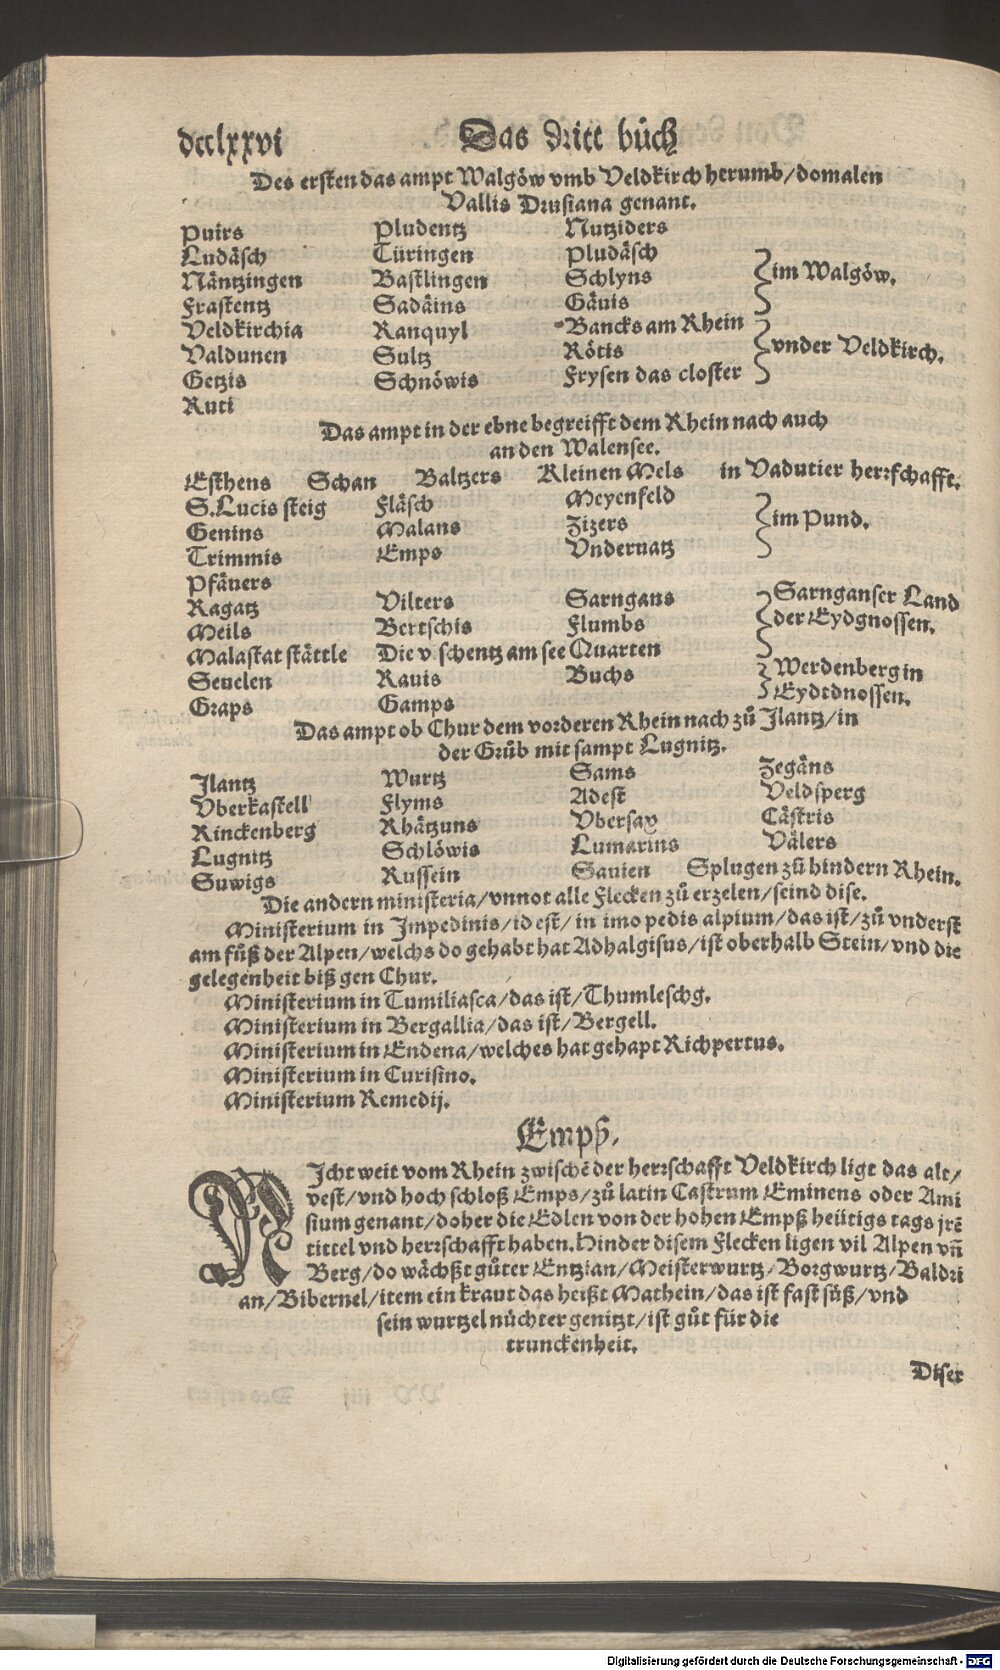 dcclxxvi Das dritt bůch
Des ersten das ampt Walgöw vmb Veldkirch herumb/domalen
Vallis Drusiana genant.
Puirs Pludentz Nutziders
Ludäsch Türingen Pludäsch
Näntzingen Bastlingen Schlyns im Walgöw.
Frastentz Sadäins Gäuis
Veldkirchia Ranquyl Bancks am Rhein
Valdunen Sultz Rötis vnder Veldkirch.
Getzis Schnöwis Frysen das closter
Ruti
Das ampt in der ebne begreifft dem Rhein nach auch
an den Walensee.
Esthens Schan Baltzers Kleinen Mels in Vadutier herrschafft.
S.Lucis steig Fläsch Meyenfeld
Genins Malans Zizers im Pund.
Trimmis Emps Vndernatz
Pfäuers
Ragatz Vilters Sarngans Sarnganser Land
Meils Bertschis Flumbs der Eydgnossen.
Malastat stättle Die v. schentz am see Quarten
Seuelen Rauis Buchs Werdenberg in
Graps Gamps Eydtdnossen.
Das ampt ob Chur dem vorderen Rhein nach zů Jlantz/in
der Grůb mit sampt Lugnitz.
Jlantz Wurtz Sams Zegäns
Vberkastell Flyms Adest Veldsperg
Rinckenberg Rhätzuns Vbersax Cästris
Lugnitz Schlöwis Lumarins Välers
Suwigs Russein Sauien Splugen zů hindern Rhein.
Die andern ministeria/vnnot alle Flecken zů erzelen/seind dise.
Ministerium in Impedinis/id est/in imo pedis alpium/das ist/zů vnderst
am fůß der Alpen/welchs do gehabt hat Adhalgisus/ist oberhalb Stein/vnd die
gelegenheit biß gen Chur.
Ministerium in Tumiliasca/das ist/Thumleschg.
Ministerium in Bergallia/das ist/Bergell.
Ministerium in Endena/welches hat gehapt Richpertus.
Ministerium in Curisino.
Ministerium Remedij.
Empß.
NJcht weit vom Rhein zwischē der herrschafft Veldkirch ligt das alt/
vest/vnd hoch schloß Emps/zů latin Castrum Eminens oder Ami
sium genant/doher die Edlen von der hohen Empß heütigs tags jrē
tittel vnd herrschafft haben. Hinder disem Flecken ligen vil Alpen vñ
Berg/do wächßt gůter Entzian/Meisterwurtz/Borgwurtz/Baldri
an/Bibernel/item ein kraut das heißt Mathein/das ist fast süß/vnd
sein wurtzel nüchter genitzt/ist gůt für die
trunckenheit.
Diser
Digitalisierung gefördert durch die Deutsche Forschungsgemeinschaft - DFG